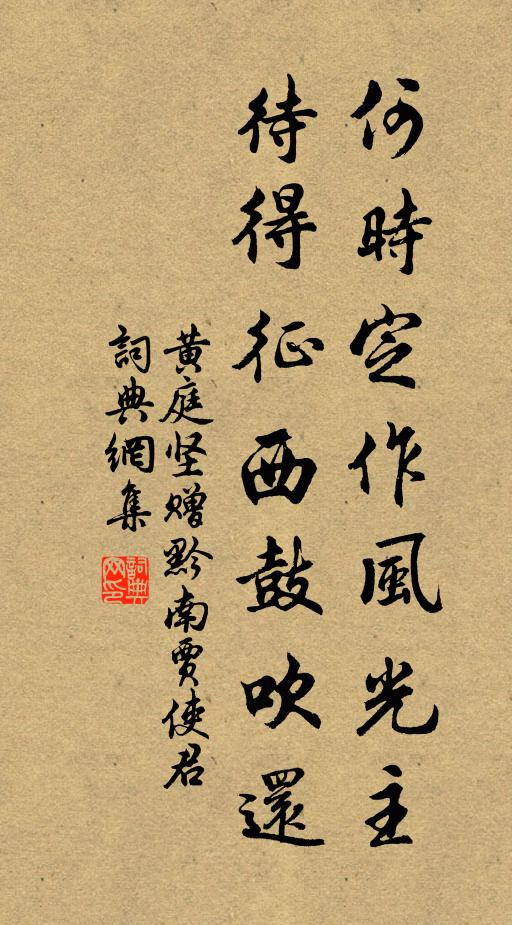 何時定作風光主
待得征西鼓吹還
黄庭坚赠黔南賈使君
詞典網集
詞典網印